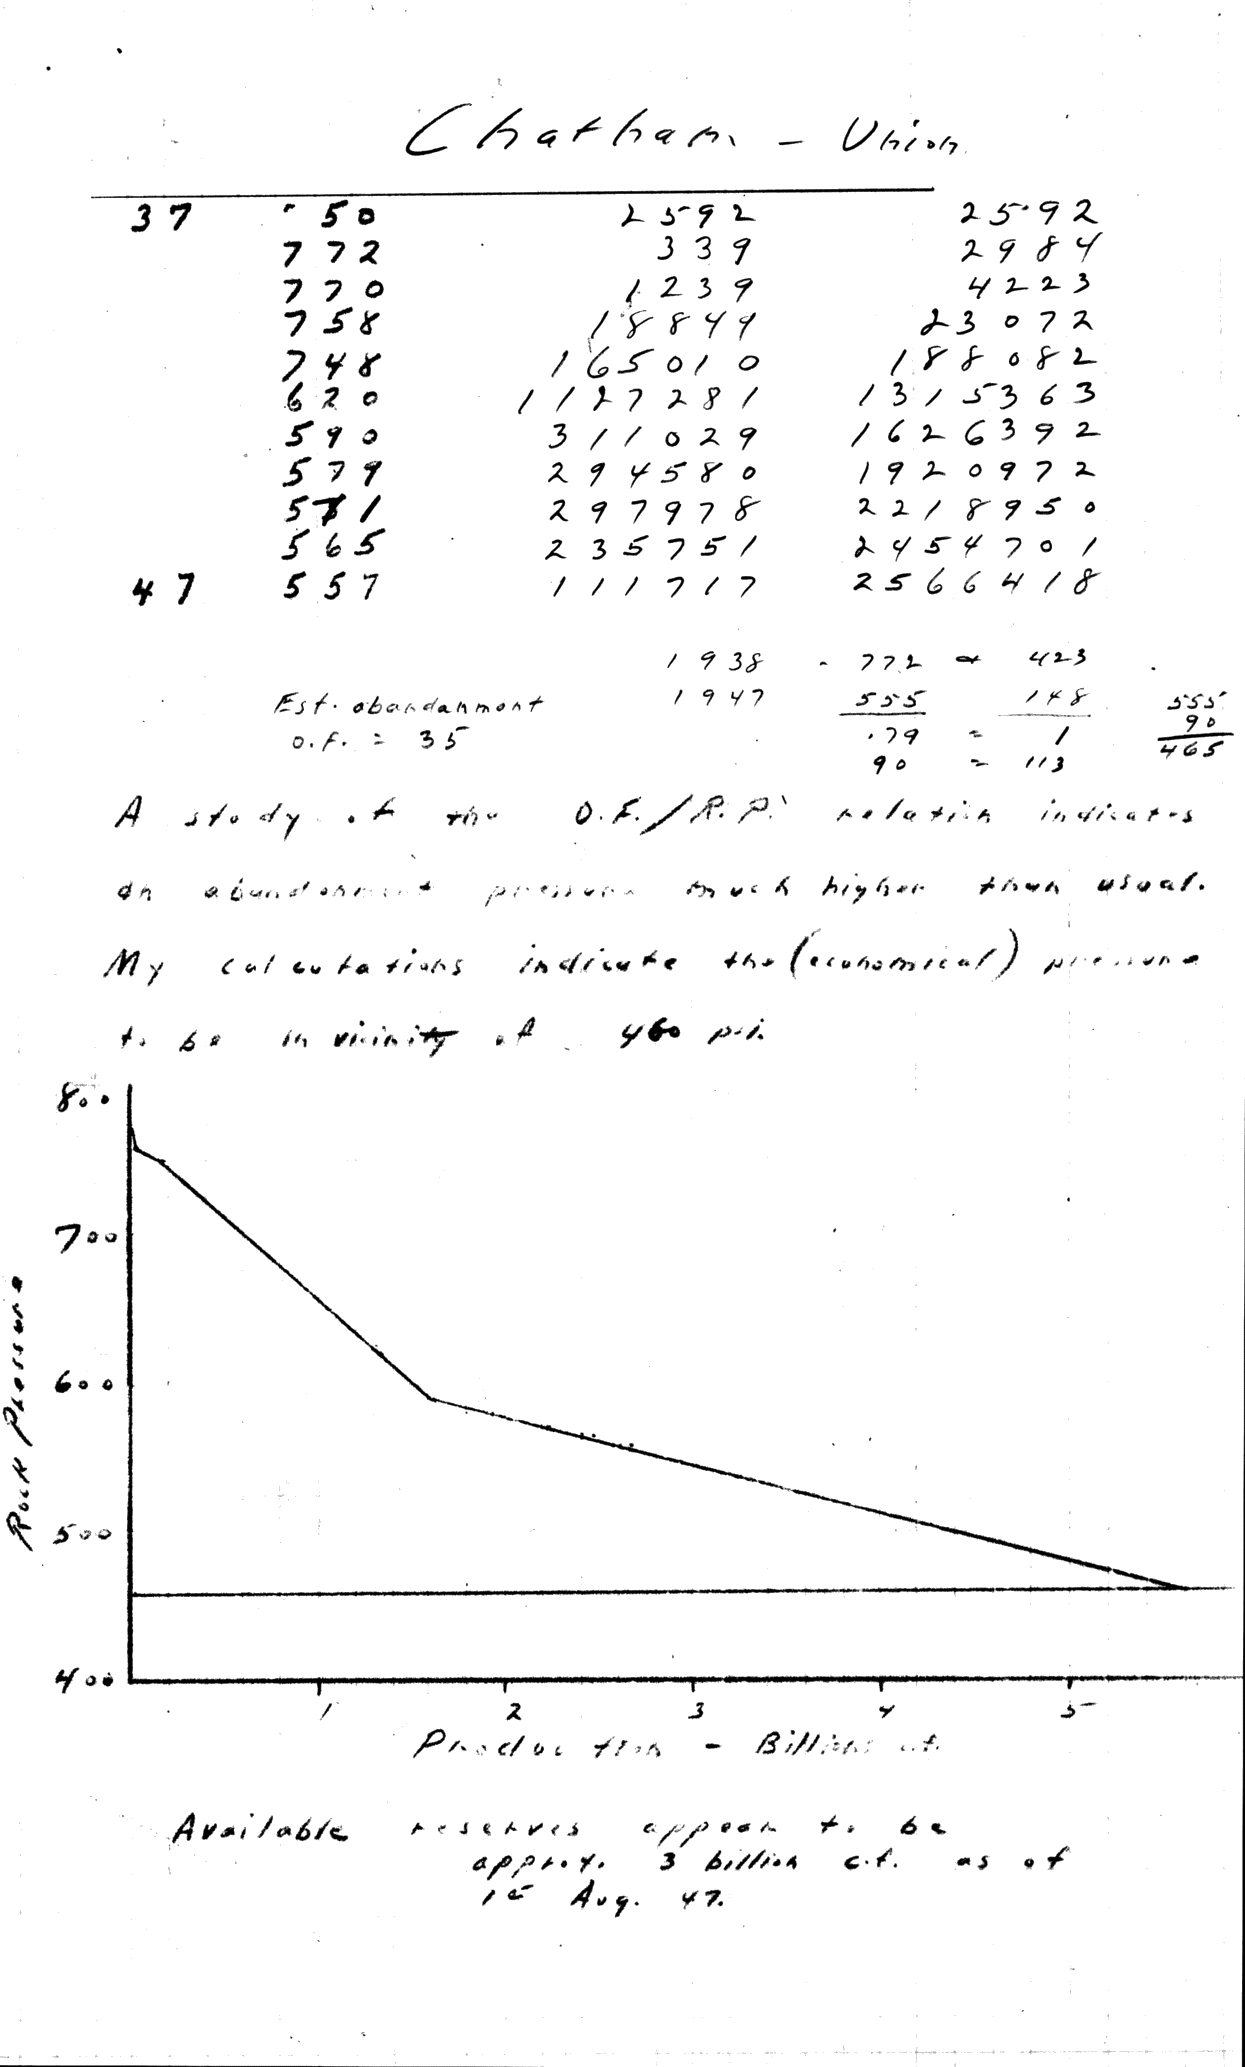 Chatham - Union
37 - 50 2592 2592
772 339 2984
770 1239 4223
758 18849 23072
748 165010 188082
620 1127281 1315363
590 311029 1626392
579 294580 1920972
571 297978 2218950
565 235751 2454701
47 557 111717 2566418
1938 - 772 423
Est. abandonment 1947 555 148 555
90
O.F. = 35 .79 = 1 465
90 = 113
A study of the O.F./R.P. relation indicates
an abandonment pressure much higher than usual.
My calculations indicate the (economical) pressure
to be in vicinity of 460 psi.
800
700
600
500
400
Rock Pressure
1 2 3 4 5
Production - Billions c.f.
Available reserves appear to be
approx. 3 billion c.f. as of
1st Aug. 47.